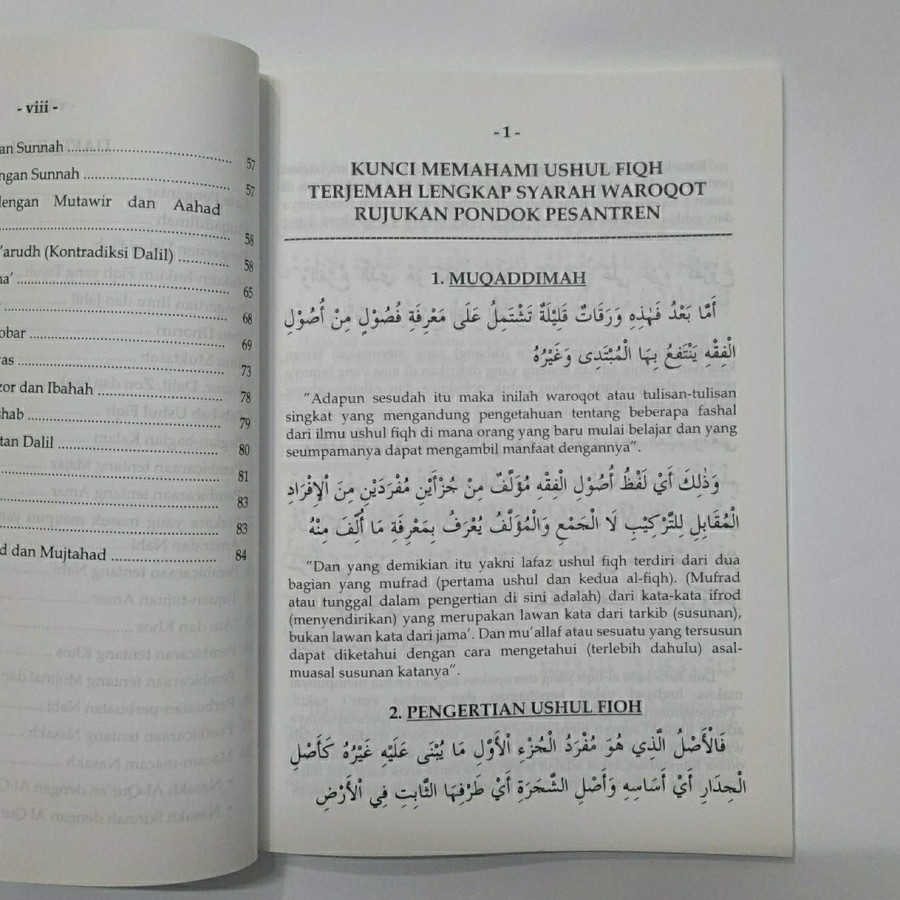 - viii -
an Sunnah ........ 57
ngan Sunnah ........ 57
dengan Mutawir dan Aahad
........ 58
'arudh (Kontradiksi Dalil) ........ 58
a' ........ 65
........ 68
obar ........ 69
as ........ 73
zor dan Ibahah ........ 78
shab ........ 79
tan Dalil ........ 80
........ 81
........ 83
........ 83
d dan Mujtahad ........ 84
- 1 -
KUNCI MEMAHAMI USHUL FIQH
TERJEMAH LENGKAP SYARAH WAROQOT
RUJUKAN PONDOK PESANTREN
1. MUQADDIMAH
أَمَّا بَعْدُ فَهٰذِهِ وَرَقَاتٌ قَلِيْلَةٌ تَشْتَمِلُ عَلَى مَعْرِفَةِ فُصُوْلٍ مِنْ أُصُوْلِ
الْفِقْهِ يَنْتَفِعُ بِهَا الْمُبْتَدِى وَغَيْرُهُ
"Adapun sesudah itu maka inilah waroqot atau tulisan-tulisan
singkat yang mengandung pengetahuan tentang beberapa fashal
dari ilmu ushul fiqh di mana orang yang baru mulai belajar dan yang
seumpamanya dapat mengambil manfaat dengannya".
وَذٰلِكَ أَيْ لَفْظُ أُصُوْلِ الْفِقْهِ مُؤَلَّفٌ مِنْ جُزْأَيْنِ مُفْرَدَيْنِ مِنَ الْاِفْرَادِ
الْمُقَابِلِ لِلتَّرْكِيْبِ لَا الْجَمْعِ وَالْمُؤَلَّفُ يُعْرَفُ بِمَعْرِفَةِ مَا أُلِّفَ مِنْهُ
"Dan yang demikian itu yakni lafaz ushul fiqh terdiri dari dua
bagian yang mufrad (pertama ushul dan kedua al-fiqh). (Mufrad
atau tunggal dalam pengertian di sini adalah) dari kata-kata ifrod
(menyendirikan) yang merupakan lawan kata dari tarkib (susunan),
bukan lawan kata dari jama'. Dan mu'allaf atau sesuatu yang tersusun
dapat diketahui dengan cara mengetahui (terlebih dahulu) asal-
muasal susunan katanya".
2. PENGERTIAN USHUL FIQH
فَالْأَصْلُ الَّذِي هُوَ مُفْرَدُ الْجُزْءِ الْأَوَّلِ مَا يُبْنَى عَلَيْهِ غَيْرُهُ كَأَصْلِ
الْجِدَارِ أَيْ أَسَاسِهِ وَأَصْلِ الشَّجَرَةِ أَيْ طَرْفِهَا الثَّابِتِ فِي الْأَرْضِ